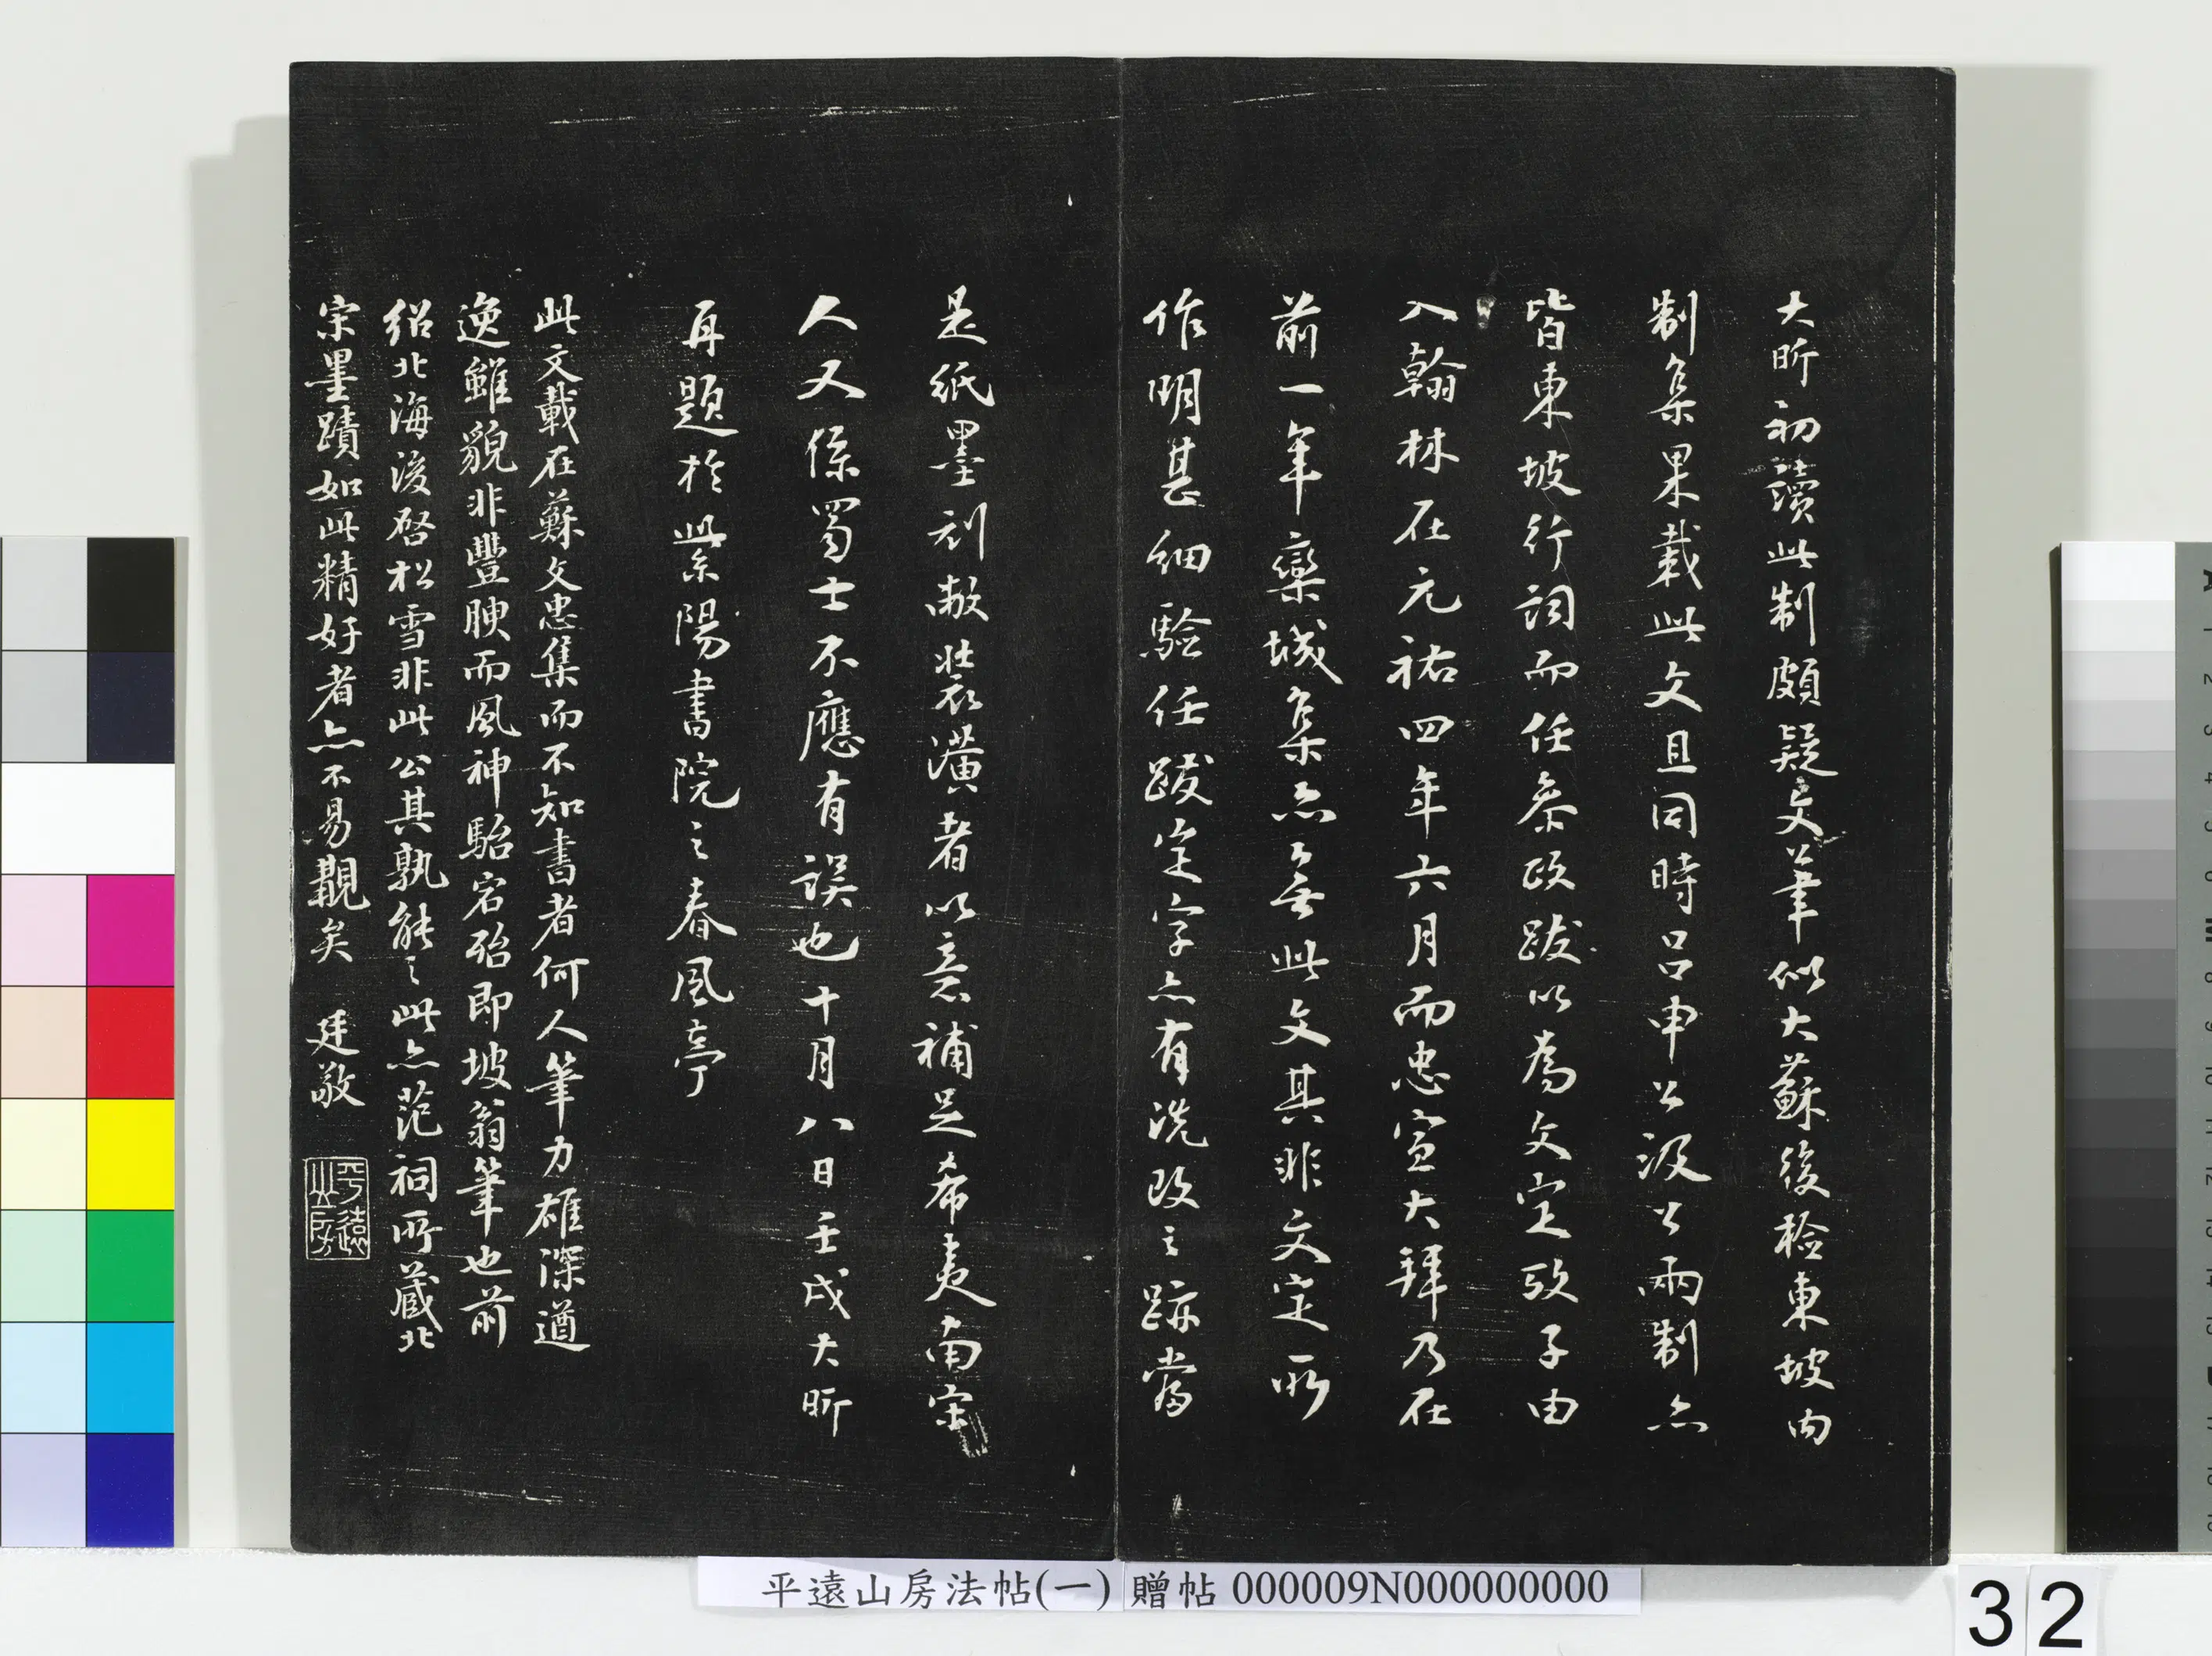 大昕初讀此制頗疑文筆似大蘇後檢東坡內
制集果載此文且同時呂申公汲公兩制亦
皆東坡行詞而任參政跋以為文定攷子由
入翰林在元祐四年六月而忠宣大拜乃在
前一年欒城集亦無此文其非文定所
作明甚細驗任跋定字亦有洗改之跡當
是紙墨刓敝裝潢者以意補足希夷南宋
人又係蜀士不應有誤也十月八日壬戌大昕
再題於紫陽書院之春風亭
此文載在蘇文忠集而不知書者何人筆力雄深遒
逸雖貌非豐腴而風神駘宕殆即坡翁筆也前
紹北海後啓松雪非此公其孰能之此亦范祠所藏北
宋墨蹟如此精好者亦不易覯矣 廷敬
平遠山房
平遠山房法帖(一) 贈帖 000009N000000000
32